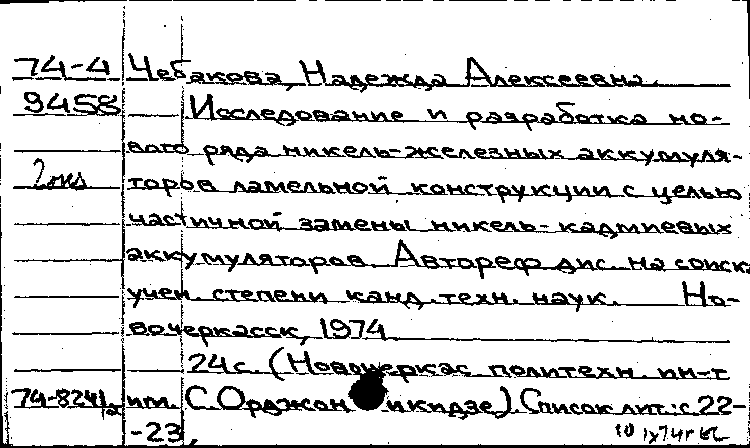 74-4 Чебакова, Надежда Алексеевна.
9458 Исследование и разработка но-
вого ряда никель-железных аккумуля-
торов ламельной конструкции с целью
частичной замены никель-кадмиевых
аккумуляторов. Автореф. дис. на соиск.
учен. степени канд. техн. наук. Но-
вочеркасск, 1974.
24 с. (Новочеркас. политехн. ин-т
74-8241 им. С. Орджоникидзе). Список лит.: с 22-
-23.